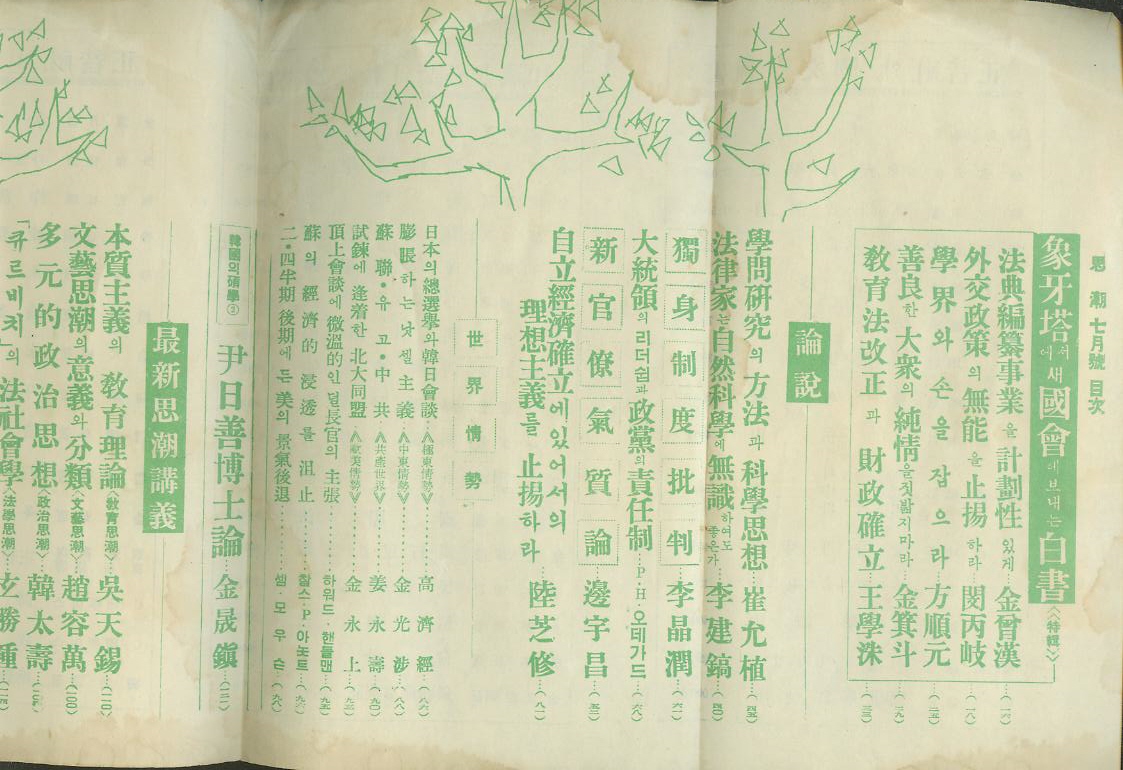 思潮 七月號 目次
象牙塔에서 새 國會에 보내는 白書 〈特輯〉
法典編纂事業을 計劃性 있게…金曾漢…(一六)
外交政策의 無能을 止揚하라…閔丙岐…(一八)
學界와 손을 잡으라…方順元…(二五)
善良한 大衆의 純情을 짓밟지마라…金箕斗…(二九)
敎育法改正과 財政確立…王學洙…(三三)
論說
學問硏究의 方法과 科學思想…崔允植…(四五)
法律家는 自然科學에 無識하여도 좋은가…李建鎬…(四〇)
獨身制度批判 李晶潤…(六一)
大統領의 리더쉽과 政黨의 責任制…P·H·오데가드…(六八)
新官僚氣質論 邊宇昌…(五二)
自立經濟確立에 있어서의
理想主義를 止揚하라 陸芝修…(八一)
世界情勢
日本의 總選擧와 韓日會談…《極東情勢》……高濟經…(八六)
膨脹하는 낫셀主義…《中東情勢》……金光涉…(八八)
蘇聯·유고·中共…《共產世界》……姜永壽…(九〇)
試鍊에 逢着한 北大同盟…《歐美情勢》……金永上
頂上會談에 微溫的인 덜長官의 主張……하워드·핸들맨
蘇의 經濟的 浸透를 沮止……찰스·P·아놋트…(九六)
二·四半期 後期에 든 美의 景氣後退……셈·모우슨…(九八)
韓國의 碩學②
尹日善博士論…金晟鎭…(一三一)
最新思潮講義
本質主義의 敎育理論〈敎育思潮〉…吳天錫…(一一〇)
文藝思潮의 意義와 分類〈文藝思潮〉…趙容萬…(一〇〇)
多元的 政治思想〈政治思潮〉…韓太壽
「큐르비치」의 法社會學〈法學思潮〉…玄勝鍾